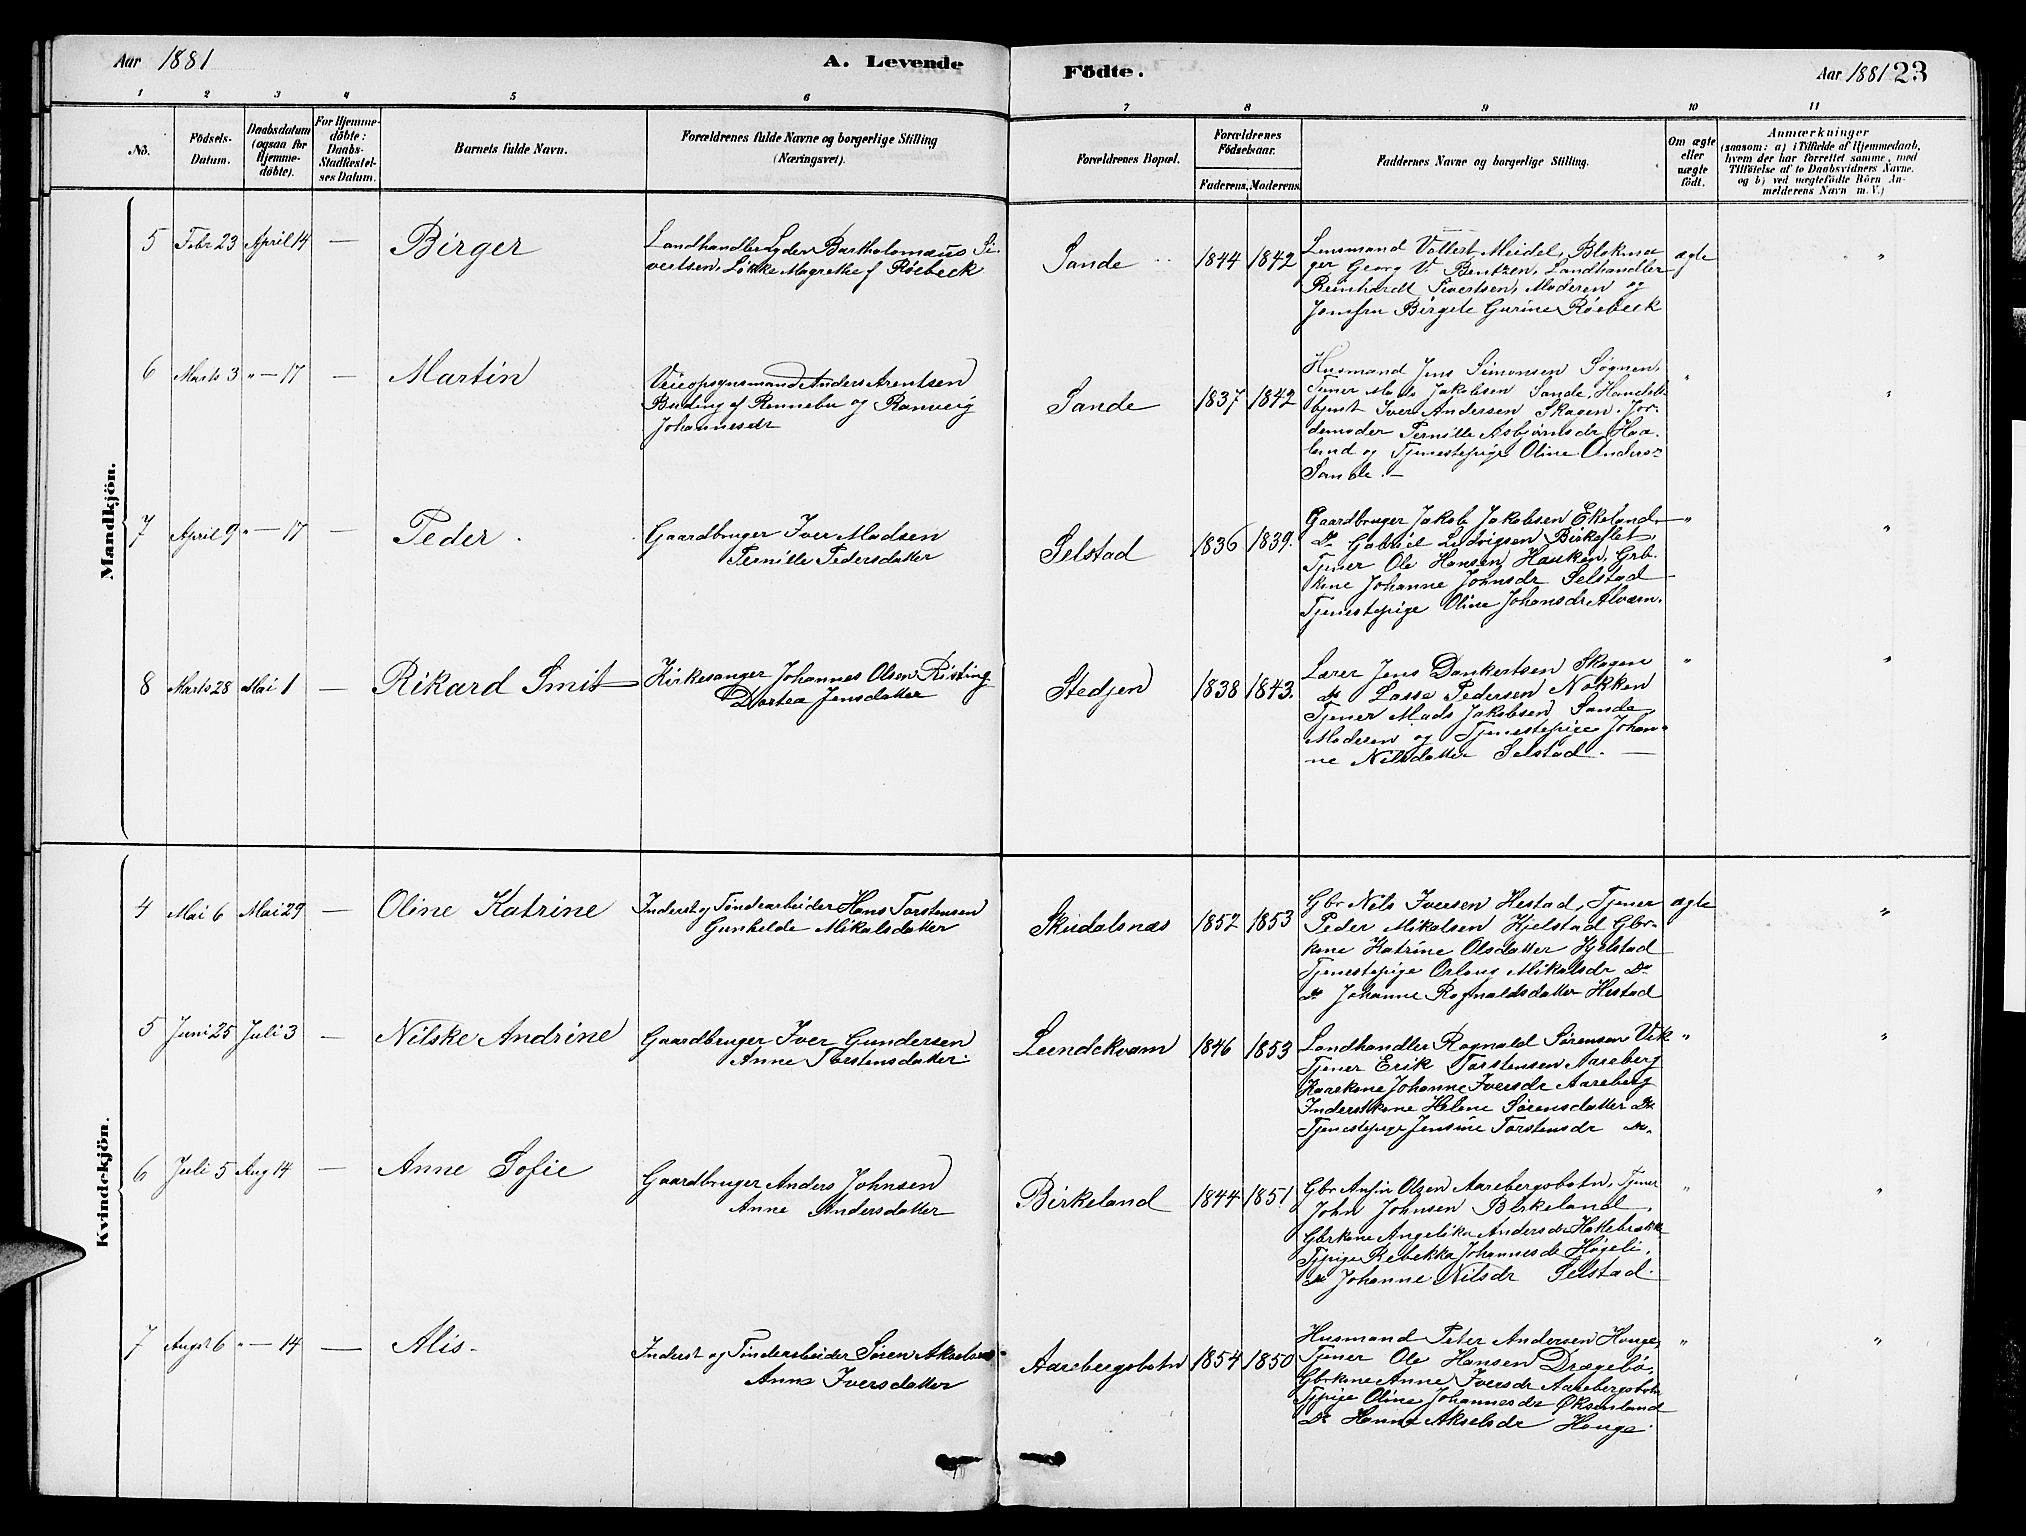 Aar 1881
A. Levende
Födte.
Aar 1881 23
1 2 3 4 5 6 7 8 9 10 11
No.
Födsels-
Datum.
Daabsdatum
(ogsaa for
Hjemme-
döbte).
For Hjemme-
döbte:
Daabs-
Stadfæstel-
ses Datum.
Barnets fulde Navn.
Forældrenes fulde Navne og borgerlige Stilling
(Næringsvei).
Forældrenes Bopæl.
Forældrenes
Födselsaar.
Faderens. Moderens.
Faddernes Navne og borgerlige Stilling.
Om ægte
eller
uægte
födt.
Anmærkninger
(saasom: a) i Tilfælde af Hjemmedaab,
hvem der har forrettet samme, med
Tilföielse af to Daabsvidners Navne,
og b) ved uægtefödte Börn An-
melderens Navn m. V.)
Mandkjön.
5 Febr 23 April 14 — Birger
Landhandler Lyder Bartholomæus Si-
vertsen, Løkke Magrethe f Röebeck
Sande 1844 1842
Lensmand Vollert Meidel, Blokma
ger Georg V. Bentzen, Landhandler
Reinhardt Sivertsen, Moderen og
Jomfru Birgete Gurine Röebeck
ægte "
6 Marts 3 " — 17 — Martin
Veiopsynsmand Anders Arentsen
Buding af Rennebu og Ranveig
Johannesdr
Sande 1837 1842
Husmand Jens Simonsen Søgnen,
Tjener Mads Jakobsen Sande, Handels
btjent Iver Andersen Skagen. Jor-
demoder Pernille Asbjørnsdr Haa-
land og Tjenestepige Oline Anders-
Sande. —
" "
7 April 9 " — 17 — Peder.
Gaardbruger Iver Madsen
Pernille Pedersdatter
Selstad 1836 1839.
Gaardbruger Jakob Jakobsen Ekeland,
Do Gabriel Ludvigsen Birkeflet,
Tjener Ole Hansen Hauken, Grb.
kone Johanne Johnsdr Selstad
Tjenestepige Oline Johansdr Alværn.
" "
8 Marts 28 Mai 1 — Rikard Smit
Kirkesanger Johannes Olsen Risting
Dortea Jensdatter
Stedjen 1838 1843.
Lærer Jens Dankertsen Skagen
Do Lasse Pedersen Nokken
Tjener Mads Jakobsen Sande,
Moderen og Tjenestepige Johan-
ne Nilsdatter Selstad. —
" "
Kvindekjön.
4 Mai 6 Mai 29 — Oline Katrine
Inderst og Tøndearbeider Hans Torstensen
Gunhelde Mikalsdatter
Skudalsnæs 1852 1853
Gbr Nils Iversen Hestad, Tjener
Peder Mikalsen Hjelstad Gbr-
kone Katrine Olsdatter Hjelstad
Tjenestepige Orlaug Mikalsdr Do
Do Johanne Ragnaldsdatter Hestad
ægte "
5 Juni 25 Juli 3 — Nilske Andrine
Gaardbruger Iver Gundersen
Anne Torstensdatter.
Lundekvam 1846 1853
Landhandler Ragnald Sørensen Vik
Tjener Erik Torstensen Aareberg
Kaarkone Johanne Iversdr Aareberg
Inderstkone Helene Sørensdatter Do
Tjenestepige Jensine Torstensdr Do.
" "
6 Juli 5 Aug 14 — Anne Sofie
Gaardbruger Anders Johnsen
Anne Andersdatter
Birkeland 1844 1851
Gbr Anfin Olsen Aarebergsbotn, Tjener
John Johnsen Birkeland,
Gbrkone Angelika Andersdr Hattebrække
Tjpige Rebekka Johannesdr Høgeli,
Do Johanne Nilsdr Selstad.
" "
7 Augst 6 " — 14 — Alis.
Inderst og Tøndearbeider Søren Akselsen
Anne Iversdatter
Aarebergsbotn 1854 1850
Husmand Peter Andersen Houge,
Tjener Ole Hansen Drægebø,
Gbrkone Anne Iversdr Aarebergsbotn
Tjpige Oline Johannesdr Øksenland
Do Hanna Akselsdr Houge.
" "